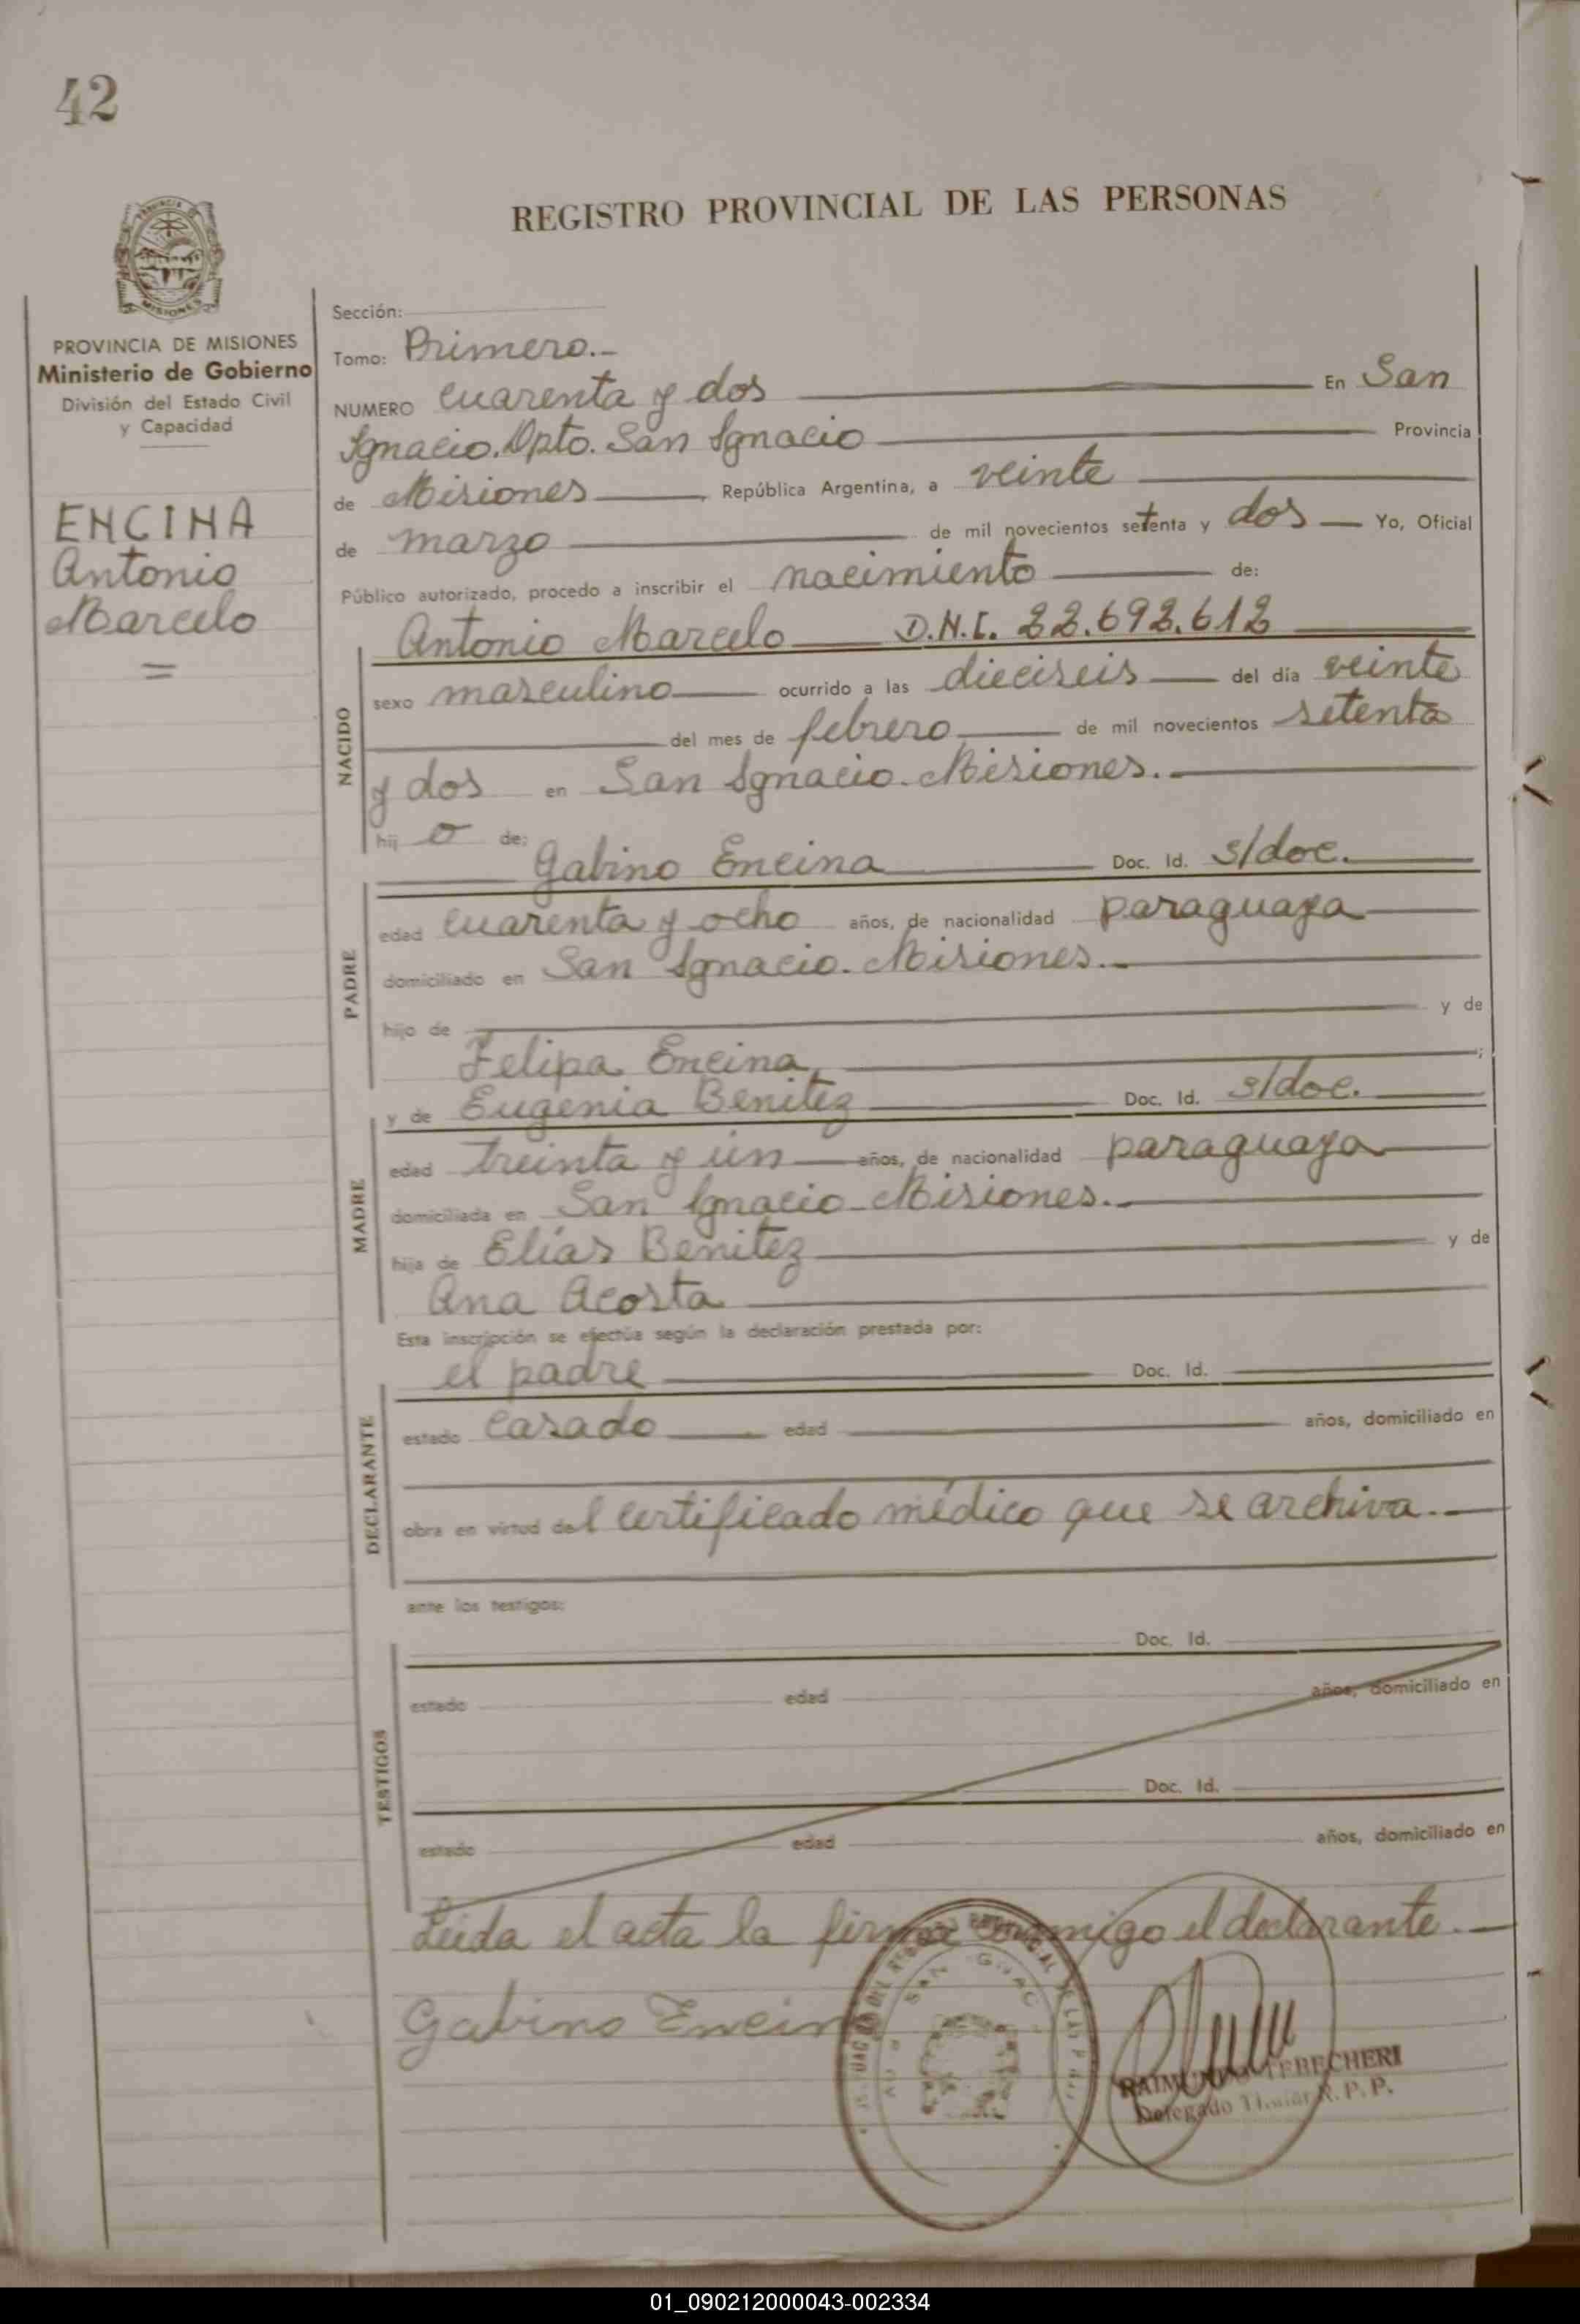 42
REGISTRO PROVINCIAL DE LAS PERSONAS
PROVINCIA DE MISIONES
Ministerio de Gobierno
División del Estado Civil
y Capacidad
ENCINA
Antonio
Marcelo
=
Sección:
Tomo: Primero.-
NUMERO cuarenta y dos En San
Ignacio. Dpto. San Ignacio Provincia
de Misiones, República Argentina, a veinte
de marzo de mil novecientos setenta y dos Yo, Oficial
Público autorizado, procedo a inscribir el nacimiento de:
NACIDO
Antonio Marcelo D.N.I. 22.692.612
sexo masculino ocurrido a las dieciseis del día veinte
del mes de febrero de mil novecientos setenta
y dos en San Ignacio. Misiones.-
hij o de:
PADRE
Gabino Encina Doc. Id. s/doc.
edad cuarenta y ocho años, de nacionalidad paraguaya
domiciliado en San Ignacio. Misiones.-
hijo de y de
Felipa Encina ;
MADRE
y de Eugenia Benitez Doc. Id. s/doc.
edad treinta y un años, de nacionalidad paraguaya
domiciliada en San Ignacio Misiones.-
hija de Elías Benitez y de
Ana Acosta
Esta inscripción se efectúa según la declaración prestada por:
DECLARANTE
el padre Doc. Id.
estado casado edad años, domiciliado en
obra en virtud del certificado médico que se archiva.-
ante los testigos:
TESTIGOS
Doc. Id.
estado edad años, domiciliado en
Doc. Id.
estado edad años, domiciliado en
Leida el acta la firma conmigo el declarante.-
Gabino Encina
Delegado Titular R. P. P.
01_090212000043-002334